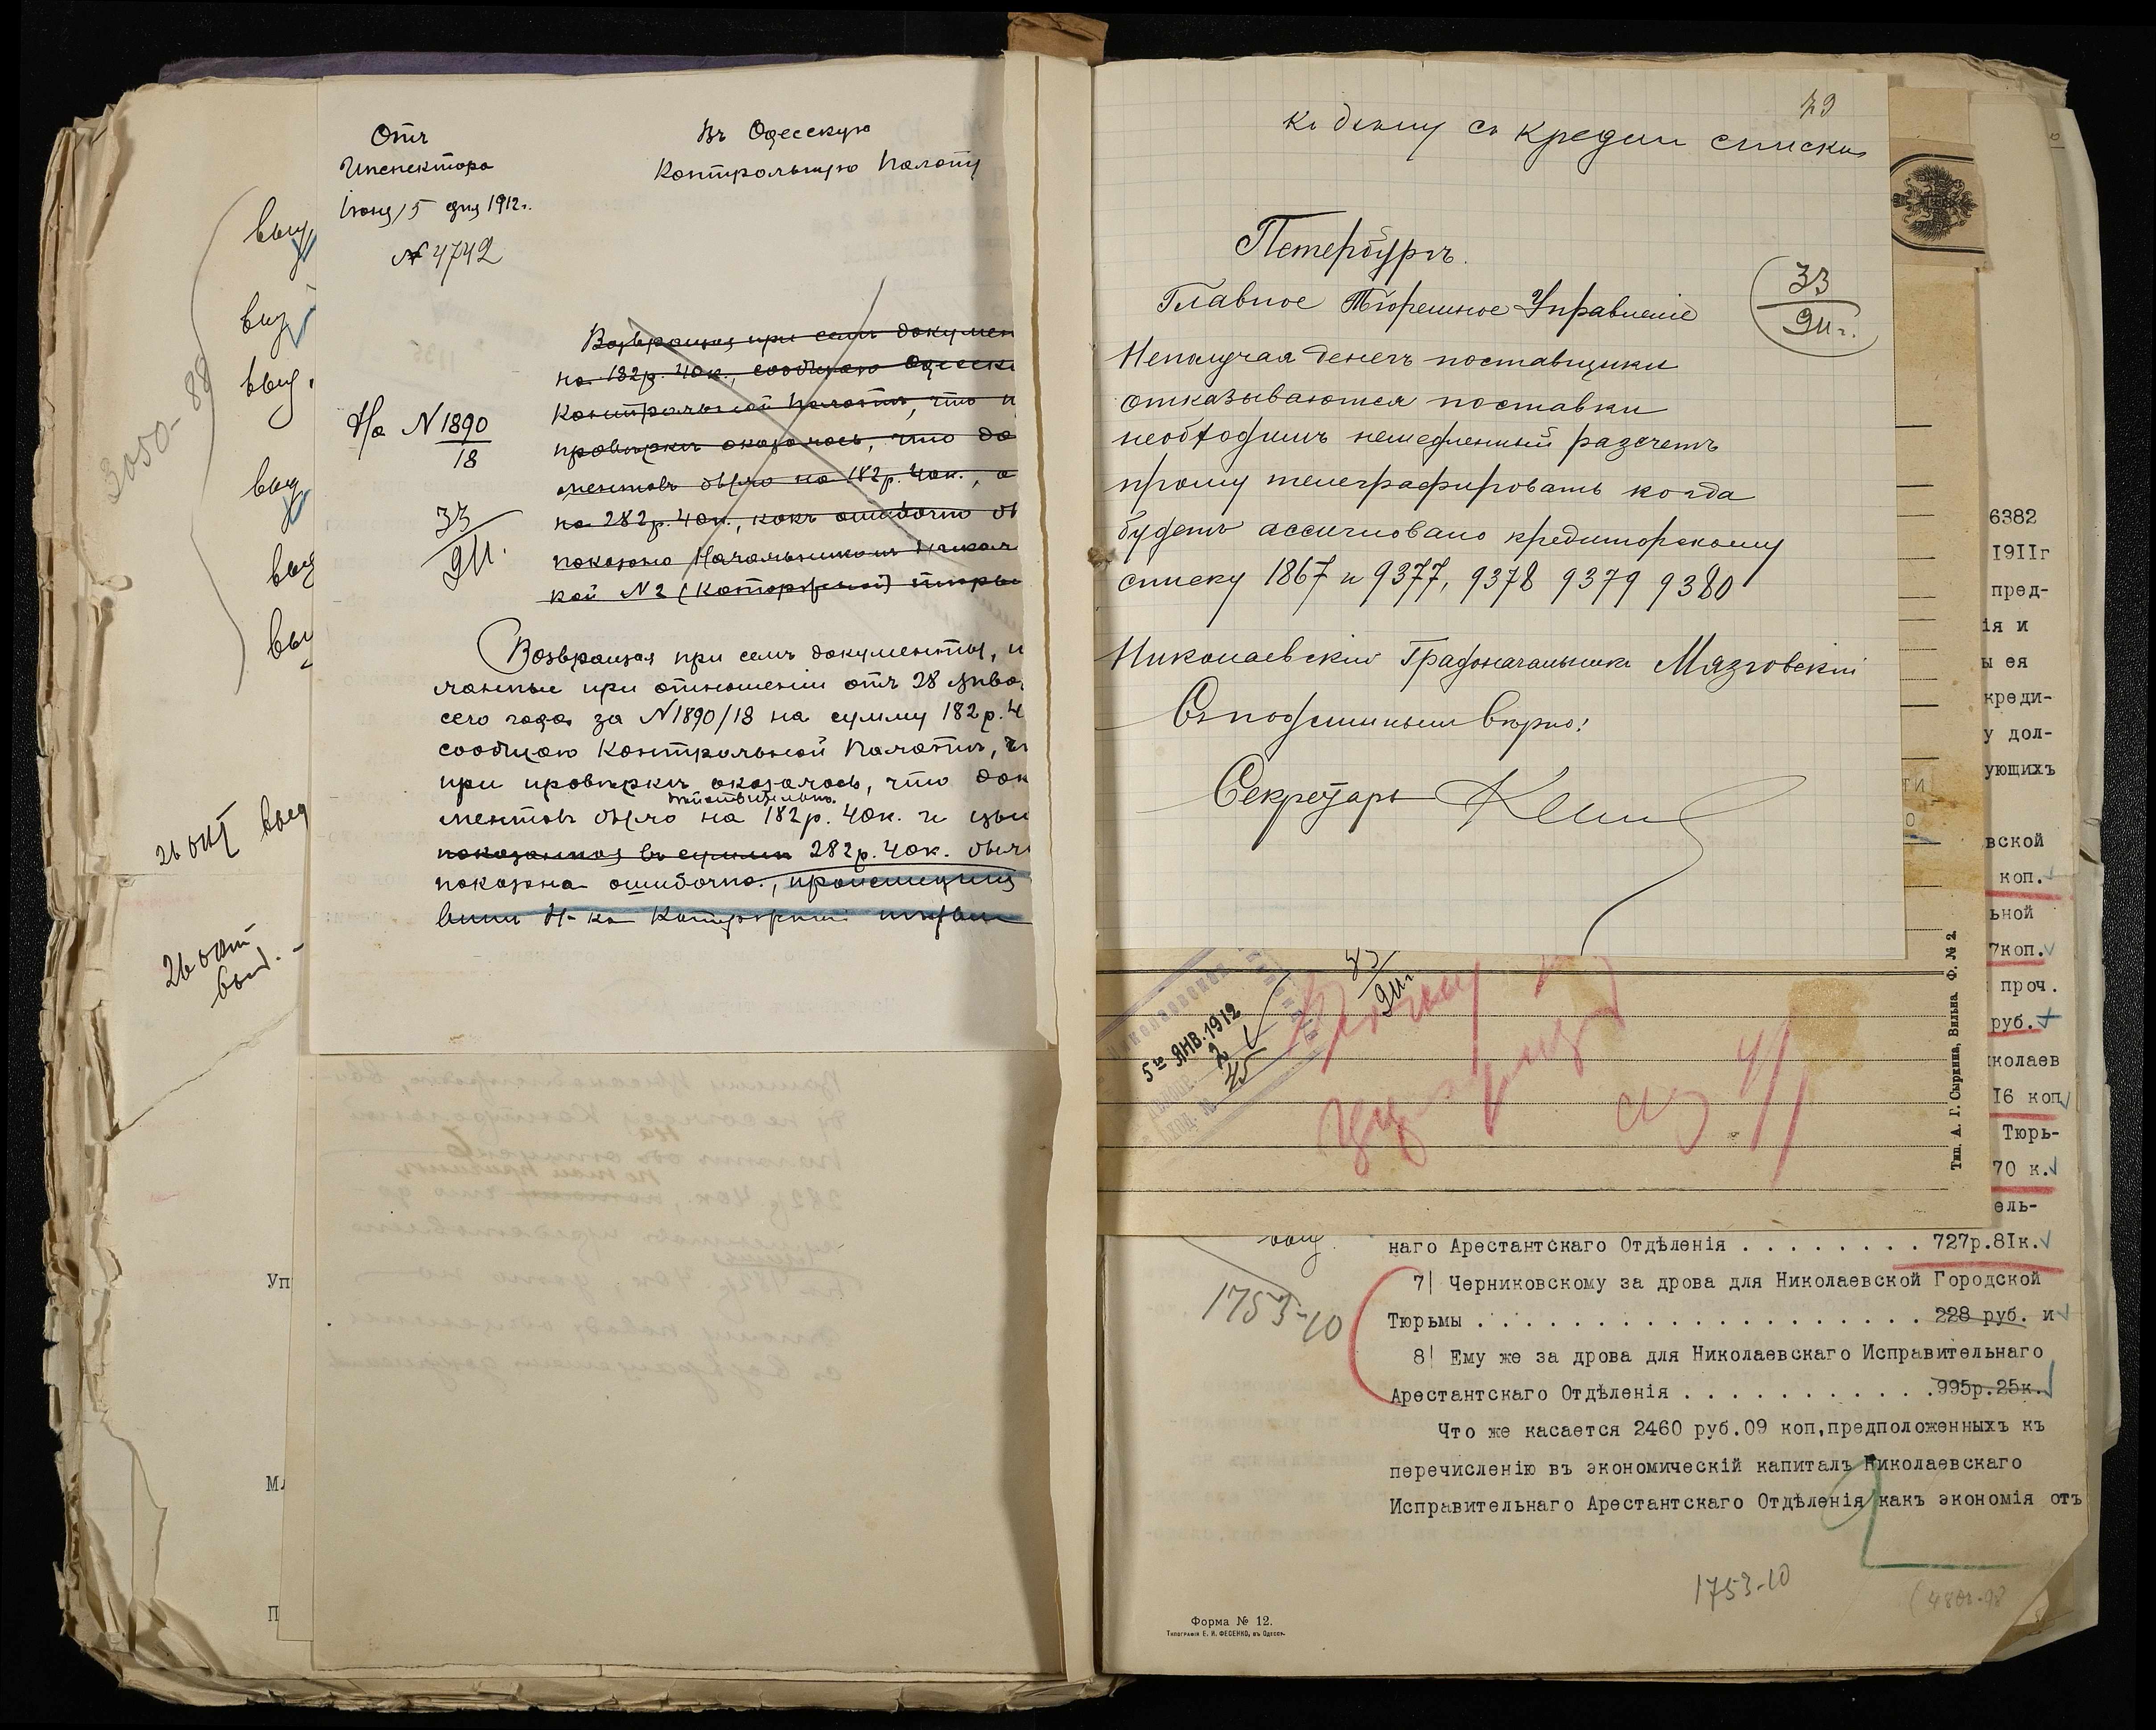 Отъ
Инспектора
Іюня 15 дня 1912 г.
№ 4742
Въ Одесскую
Контрольную Палату
На № 1890
18
33
911.
Возвращая при семъ докумен
на 182 р. 40 к., сообщаю Одесск
Контрольной Палатѣ, что п
провѣркѣ оказалось, что до
ментовъ было на 182 р. 40 к., а
на 282 р. 40 к., какъ ошибочно
показано Начальникомъ Никол
кой № 2 (Каторжной) тюрь
Возвращая при семъ документы,
ланные при отношеніи отъ 28 Янва
сего года за № 1890/18 на сумму 182 р. 4
сообщаю Контрольной Палатѣ, ч
при провѣркѣ оказалось, что док
дѣйствительно
ментовъ было на 182 р. 40 к. и
показанная въ суммѣ 282 р. 40 к. был
показана ошибочно.,
Н-ка Каторжной тюрьмы
3050-88
выд.
выд
выд.
выд
выд
вы
26 окт выд
26 окт
выд. -
Уп
М
П
79
Къ дѣлу съ кредит списком
Петербургъ.
33
911 г.
Главное Тюремное Управленіе
Неполучая денегъ поставщики
отказываются поставки
необходимъ немедленный разсчетъ
прошу телеграфировать когда
будетъ ассигновано кредиторскому
списку 1867 и 9377, 9378 9379 9380
Николаевскій Градоначальникъ Мязговскій
Съ подлиннымъ вѣрно:
Секретарь
33
911 г.
5го ЯНВ. 1912
2
45
Тип. А. Г. Сыркина, Вильна. Ф. № 2.
6382
1911г
пред-
ія и
ы ея
креди-
у дол-
ующихъ
вской
коп.
ьной
7коп.
проч.
руб.
иколаев
16 коп
Тюрь-
70 к.
ель-
наго Арестантскаго Отдѣленія . . . . . . . . 727р.81к.
7| Черниковскому за дрова для Николаевской Городской
Тюрьмы . . . . . . . . . . . . . . . . . . . 228 руб. и
8| Ему же за дрова для Николаевскаго Исправительнаго
Арестантскаго Отдѣленія . . . . . . . . . . . 995р.25к.
Что же касается 2460 руб.09 коп,предположенныхъ къ
перечисленію въ экономическій капиталъ Николаевскаго
Исправительнаго Арестантскаго Отдѣленія какъ экономія отъ
1753-10
1753-10
Форма № 12.
Типографія Е. И. ФЕСЕНКО, въ Одессѣ.